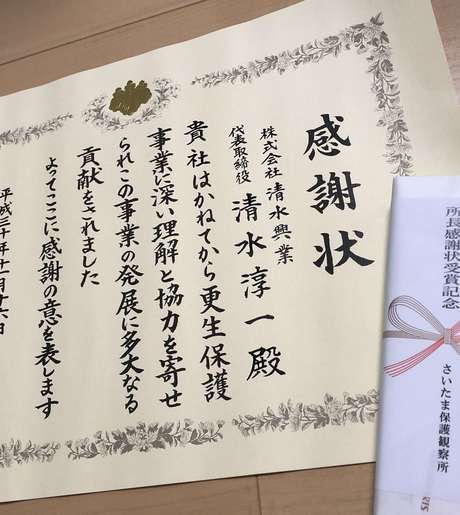 感謝状
株式会社清水興業
代表取締役 清水淳一殿
貴社はかねてから更生保護
事業に深い理解と協力を寄せ
られこの事業の発展に多大なる
貢献をされました
よってここに感謝の意を表します
平成三十年十一月十六日
所長感謝状受賞記念
さいたま保護観察所